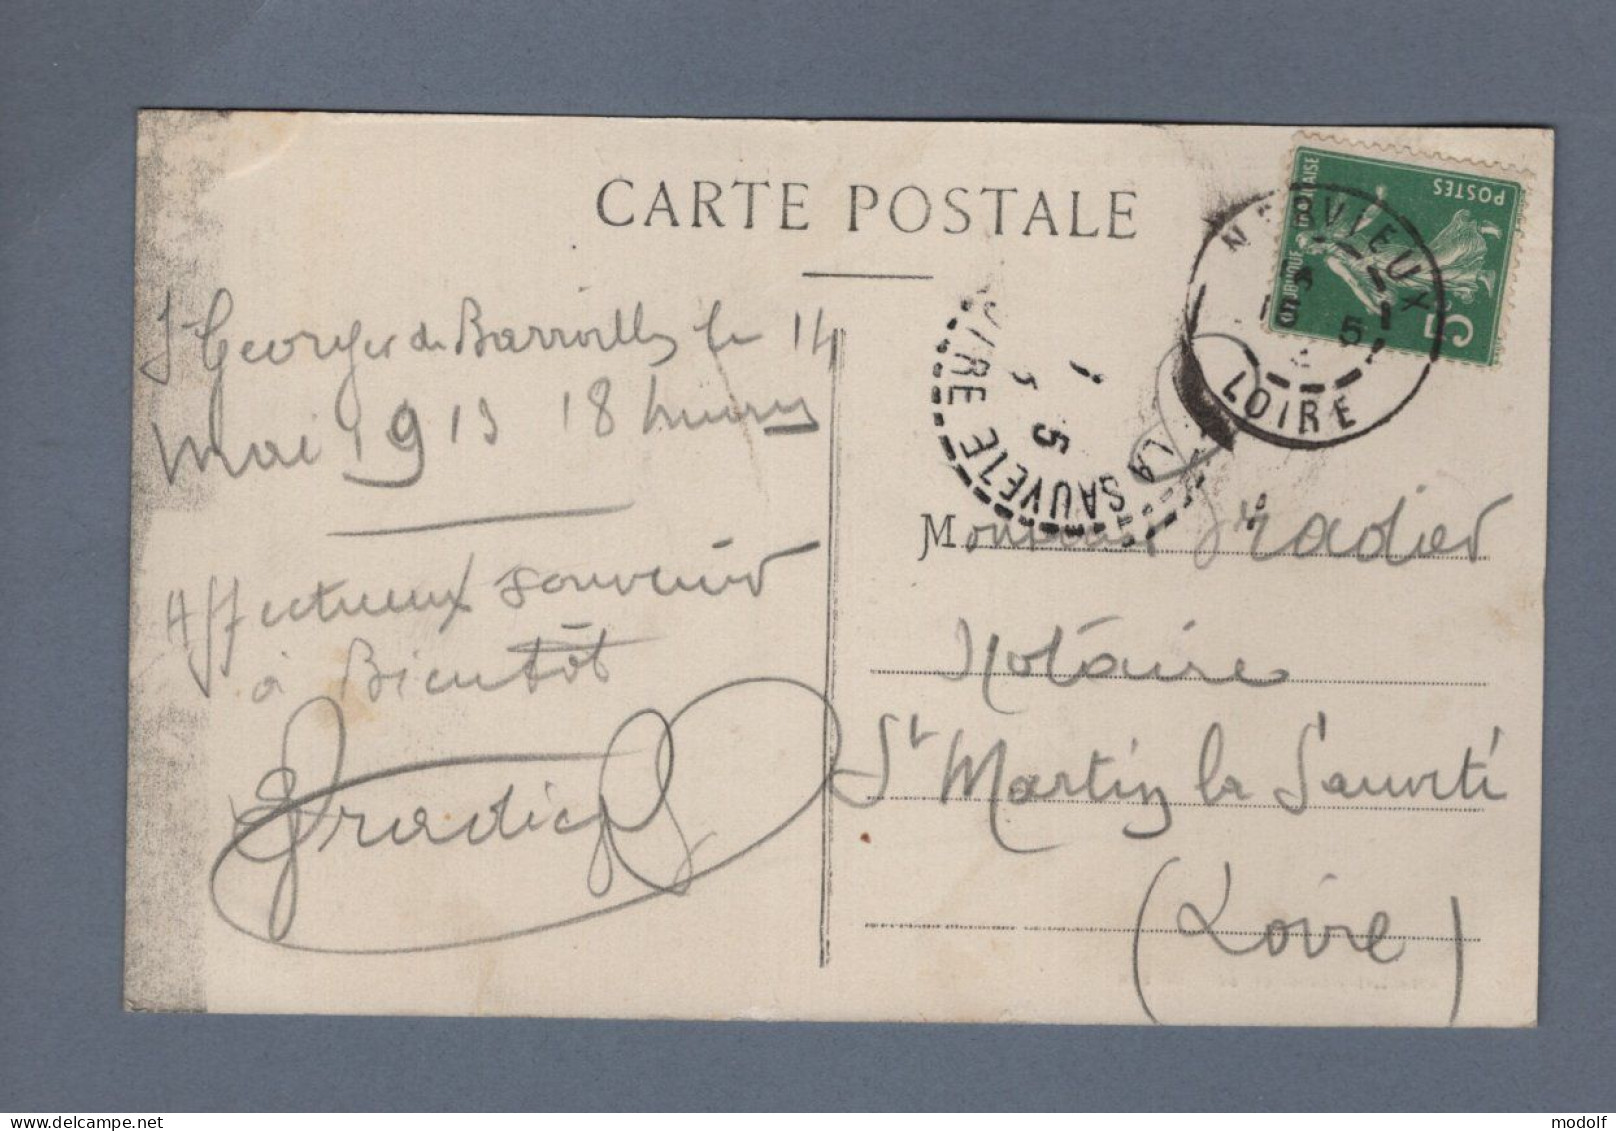 CARTE POSTALE
St Georges de Barroilles le 14
mai 1913 18 heures
Affectueux souvenir
à Bientôt
Gradier
Monsieur Gradier
Notaire
St Martin la Sauveté
(Loire)
POSTES
5c
NERVIEUX
5
LOIRE
LA SAUVETE
5
LOIRE
delcampe.net
modolf